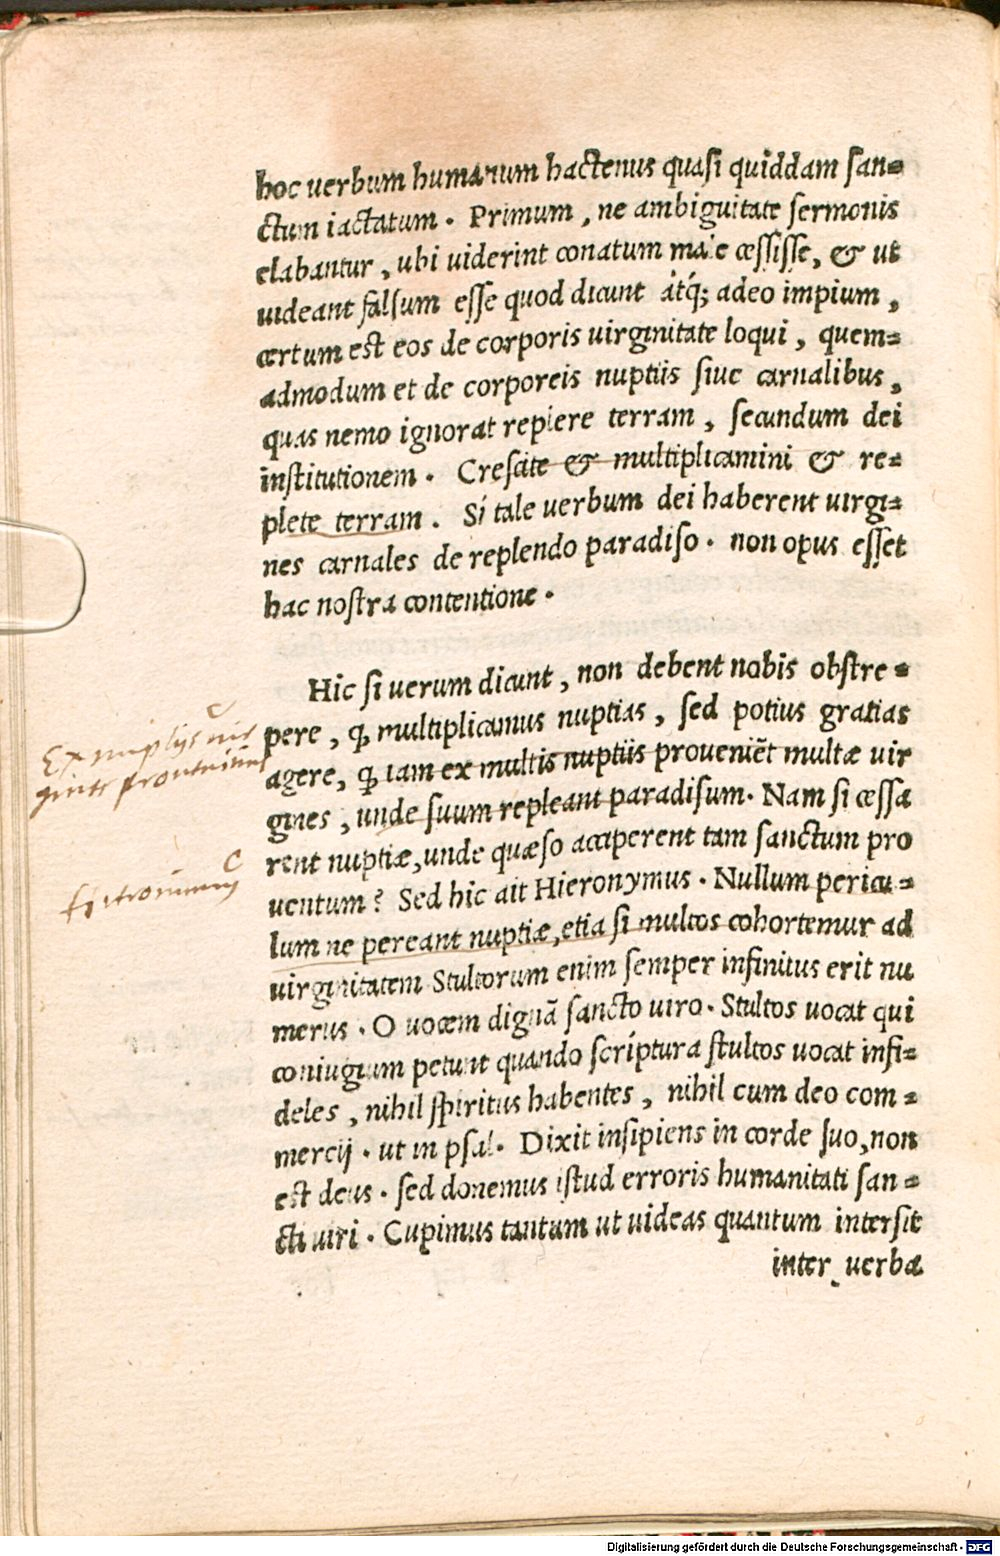 hoc uerbum humanum hactenus quasi quiddam san=
ctum iactatum . Primum , ne ambiguitate sermonis
elabantur , ubi uiderint conatum male cessisse, & ut
uideant falsum esse quod dicunt atq; adeo impium ,
certum est eos de corporis uirginitate loqui , quem=
admodum et de corporeis nuptiis siue carnalibus ,
quas nemo ignorat replere terram , secundum dei
institutionem . Crescite & multiplicamini & re=
plete terram . Si tale uerbum dei haberent uirgi=
nes carnales de replendo paradiso . non opus esset
hac nostra contentione .
Hic si uerum dicunt , non debent nobis obstre=
pere , ꝙ multiplicamus nuptias , sed potius gratias
agere, ꝙ iam ex multis nuptiis proueniẽt multæ uir
gines , unde suum repleant paradisum. Nam si cessa
rent nuptiæ, unde quæso acciperent tam sanctum pro
uentum ? Sed hic ait Hieronymus . Nullum pericu=
lum ne pereant nuptiæ, etiã si multos cohortemur ad
uirginitatem Stultorum enim semper infinitus erit nu
merus . O uocem dignã sancto uiro . Stultos uocat qui
coniugium petunt quando scriptura stultos uocat infi=
deles , nihil spiritus habentes , nihil cum deo com=
mercij . ut in psal. Dixit insipiens in corde suo, non
est deus . sed donemus istud erroris humanitati san=
cti uiri . Cupimus tantum ut uideas quantum intersit
inter uerba
Ex nuptijs uir
gines
Hieronimus
Digitalisierung gefördert durch die Deutsche Forschungsgemeinschaft · DFG